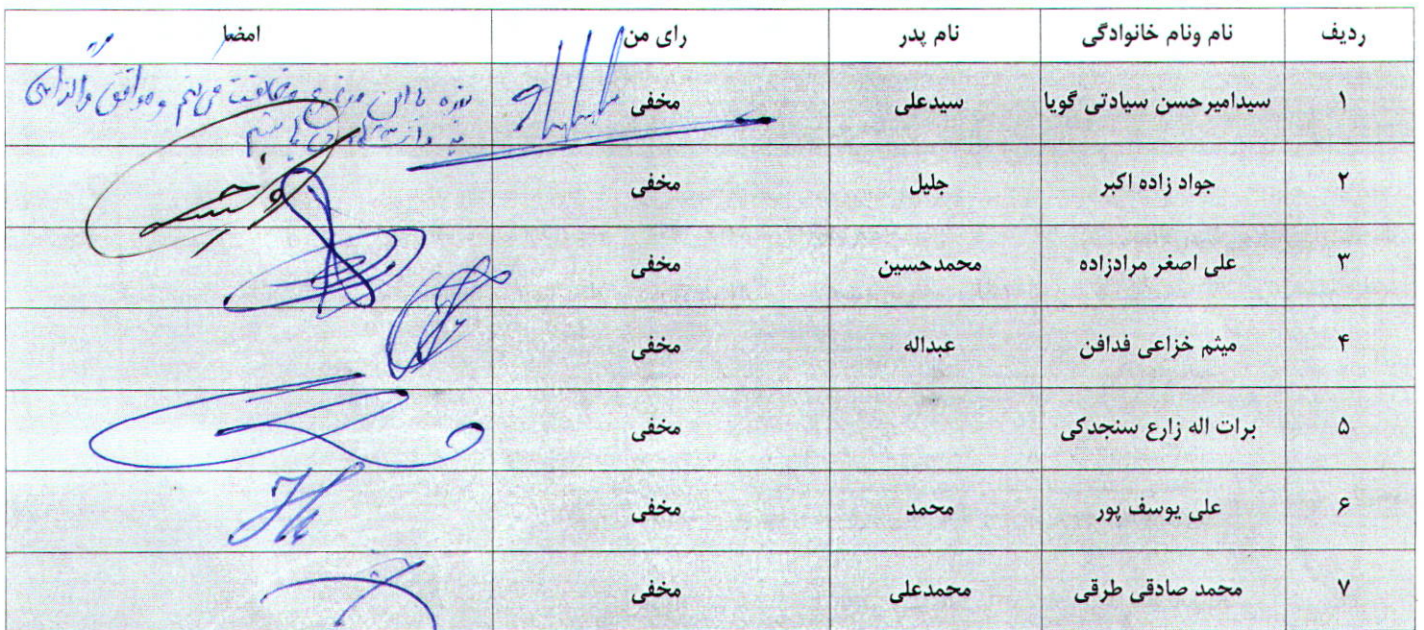 ردیف نام ونام خانوادگی نام پدر رای من امضا
۱ سیدامیرحسن سیادتی گویا سیدعلی مخفی
بنده با این موضوع مخالفت می‌کنم و موافق واگذاری
۲ جواد زاده اکبر جلیل مخفی
۳ علی اصغر مرادزاده محمدحسین مخفی
۴ میثم خزاعی فدافن عبداله مخفی
۵ برات اله زارع سنجدکی مخفی
۶ علی یوسف پور محمد مخفی
۷ محمد صادقی طرقی محمدعلی مخفی